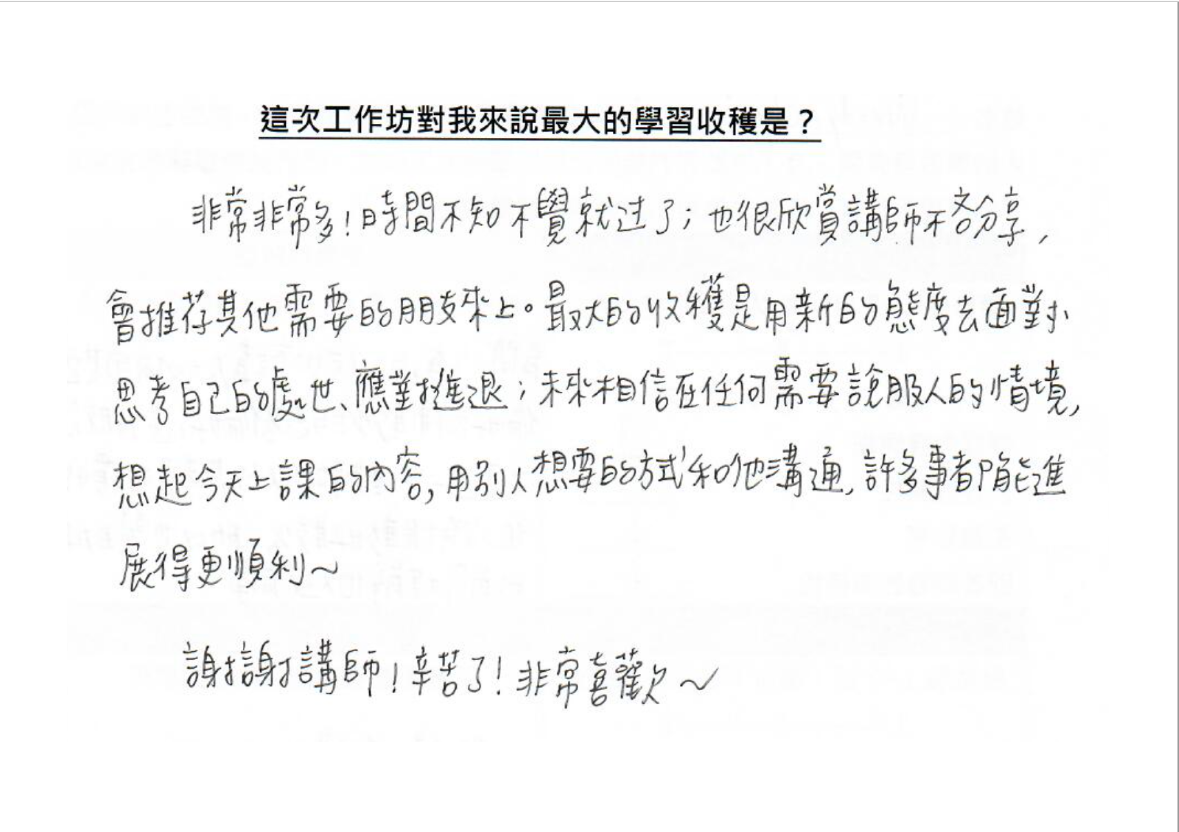 這次工作坊對我來說最大的學習收穫是？
非常非常多！時間不知不覺就过了；也很欣賞講師不吝分享，
會推荐其他需要的朋友來上。最大的收穫是用新的態度去面對、
思考自己的處世、應對進退；未來相信在任何需要說服人的情境，
想起今天上課的內容，用別人想要的方式和他溝通，許多事都能進
展得更順利～
謝謝講師！辛苦了！非常喜歡～